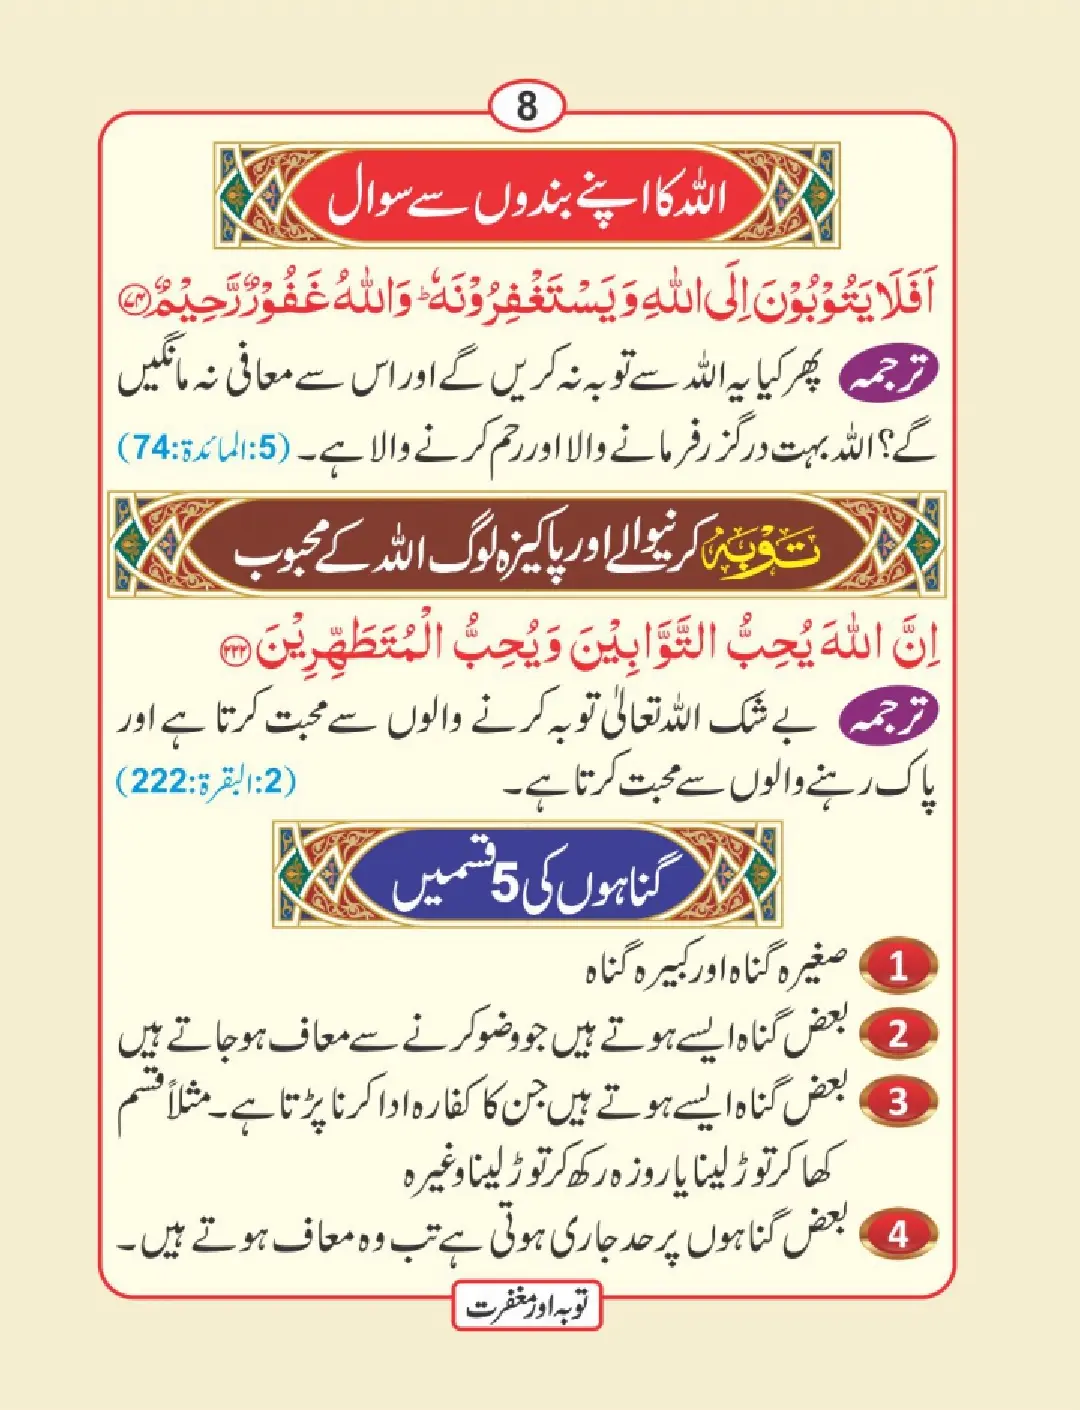 8
اللہ کا اپنے بندوں سے سوال
اَفَلَا يَتُوْبُوْنَ اِلَى اللّٰهِ وَ يَسْتَغْفِرُوْنَهٗ ؕ وَاللّٰهُ غَفُوْرٌ رَّحِيْمٌ ﴿۷۴﴾
ترجمہ پھر کیا یہ اللہ سے توبہ نہ کریں گے اور اس سے معافی نہ مانگیں
گے؟ اللہ بہت درگزر فرمانے والا اور رحم کرنے والا ہے۔ (5:المائدۃ:74)
تَوْبَہُ کرنیوالے اور پاکیزہ لوگ اللہ کے محبوب
اِنَّ اللّٰهَ يُحِبُّ التَّوَّابِيْنَ وَيُحِبُّ الْمُتَطَهِّرِيْنَ ﴿۲۲۲﴾
ترجمہ بے شک اللہ تعالیٰ توبہ کرنے والوں سے محبت کرتا ہے اور
پاک رہنے والوں سے محبت کرتا ہے۔ (2:البقرۃ:222)
گناہوں کی 5 قسمیں
1 صغیرہ گناہ اور کبیرہ گناہ
2 بعض گناہ ایسے ہوتے ہیں جو وضو کرنے سے معاف ہو جاتے ہیں
3 بعض گناہ ایسے ہوتے ہیں جن کا کفارہ ادا کرنا پڑتا ہے۔ مثلاً قسم
کھا کر توڑ لینا یا روزہ رکھ کر توڑ لینا وغیرہ
4 بعض گناہوں پر حد جاری ہوتی ہے تب وہ معاف ہوتے ہیں۔
توبہ اور مغفرت